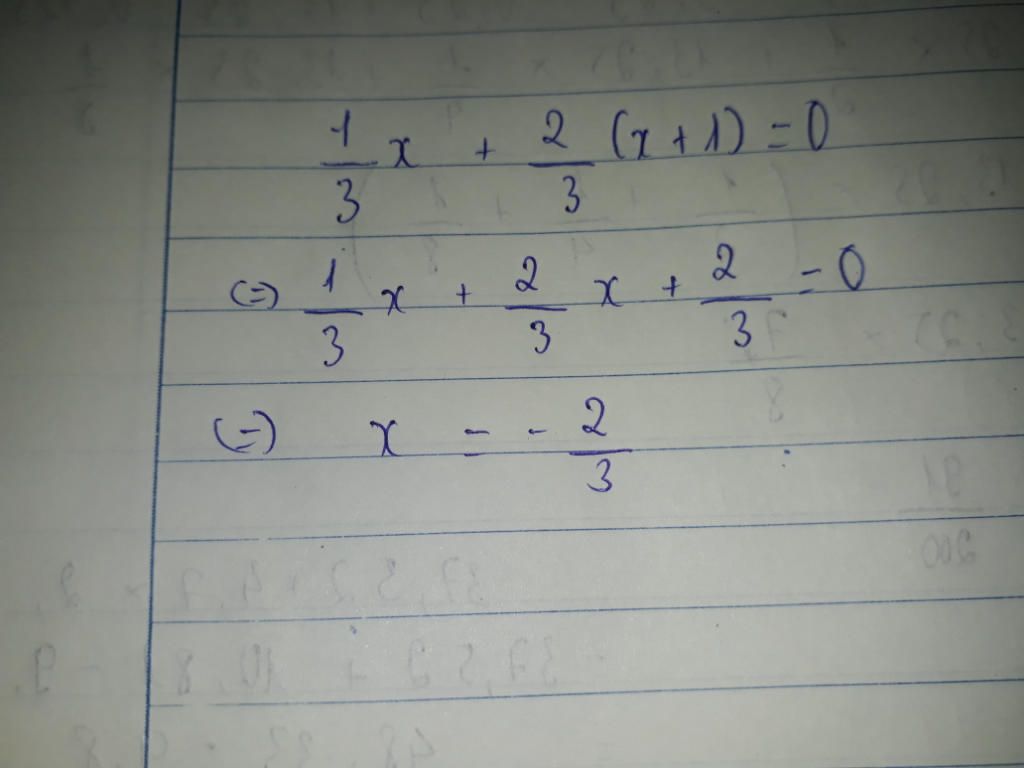 1/3 x + 2/3 (x + 1) = 0
(=) 1/3 x + 2/3 x + 2/3 = 0
(=) x = - 2/3